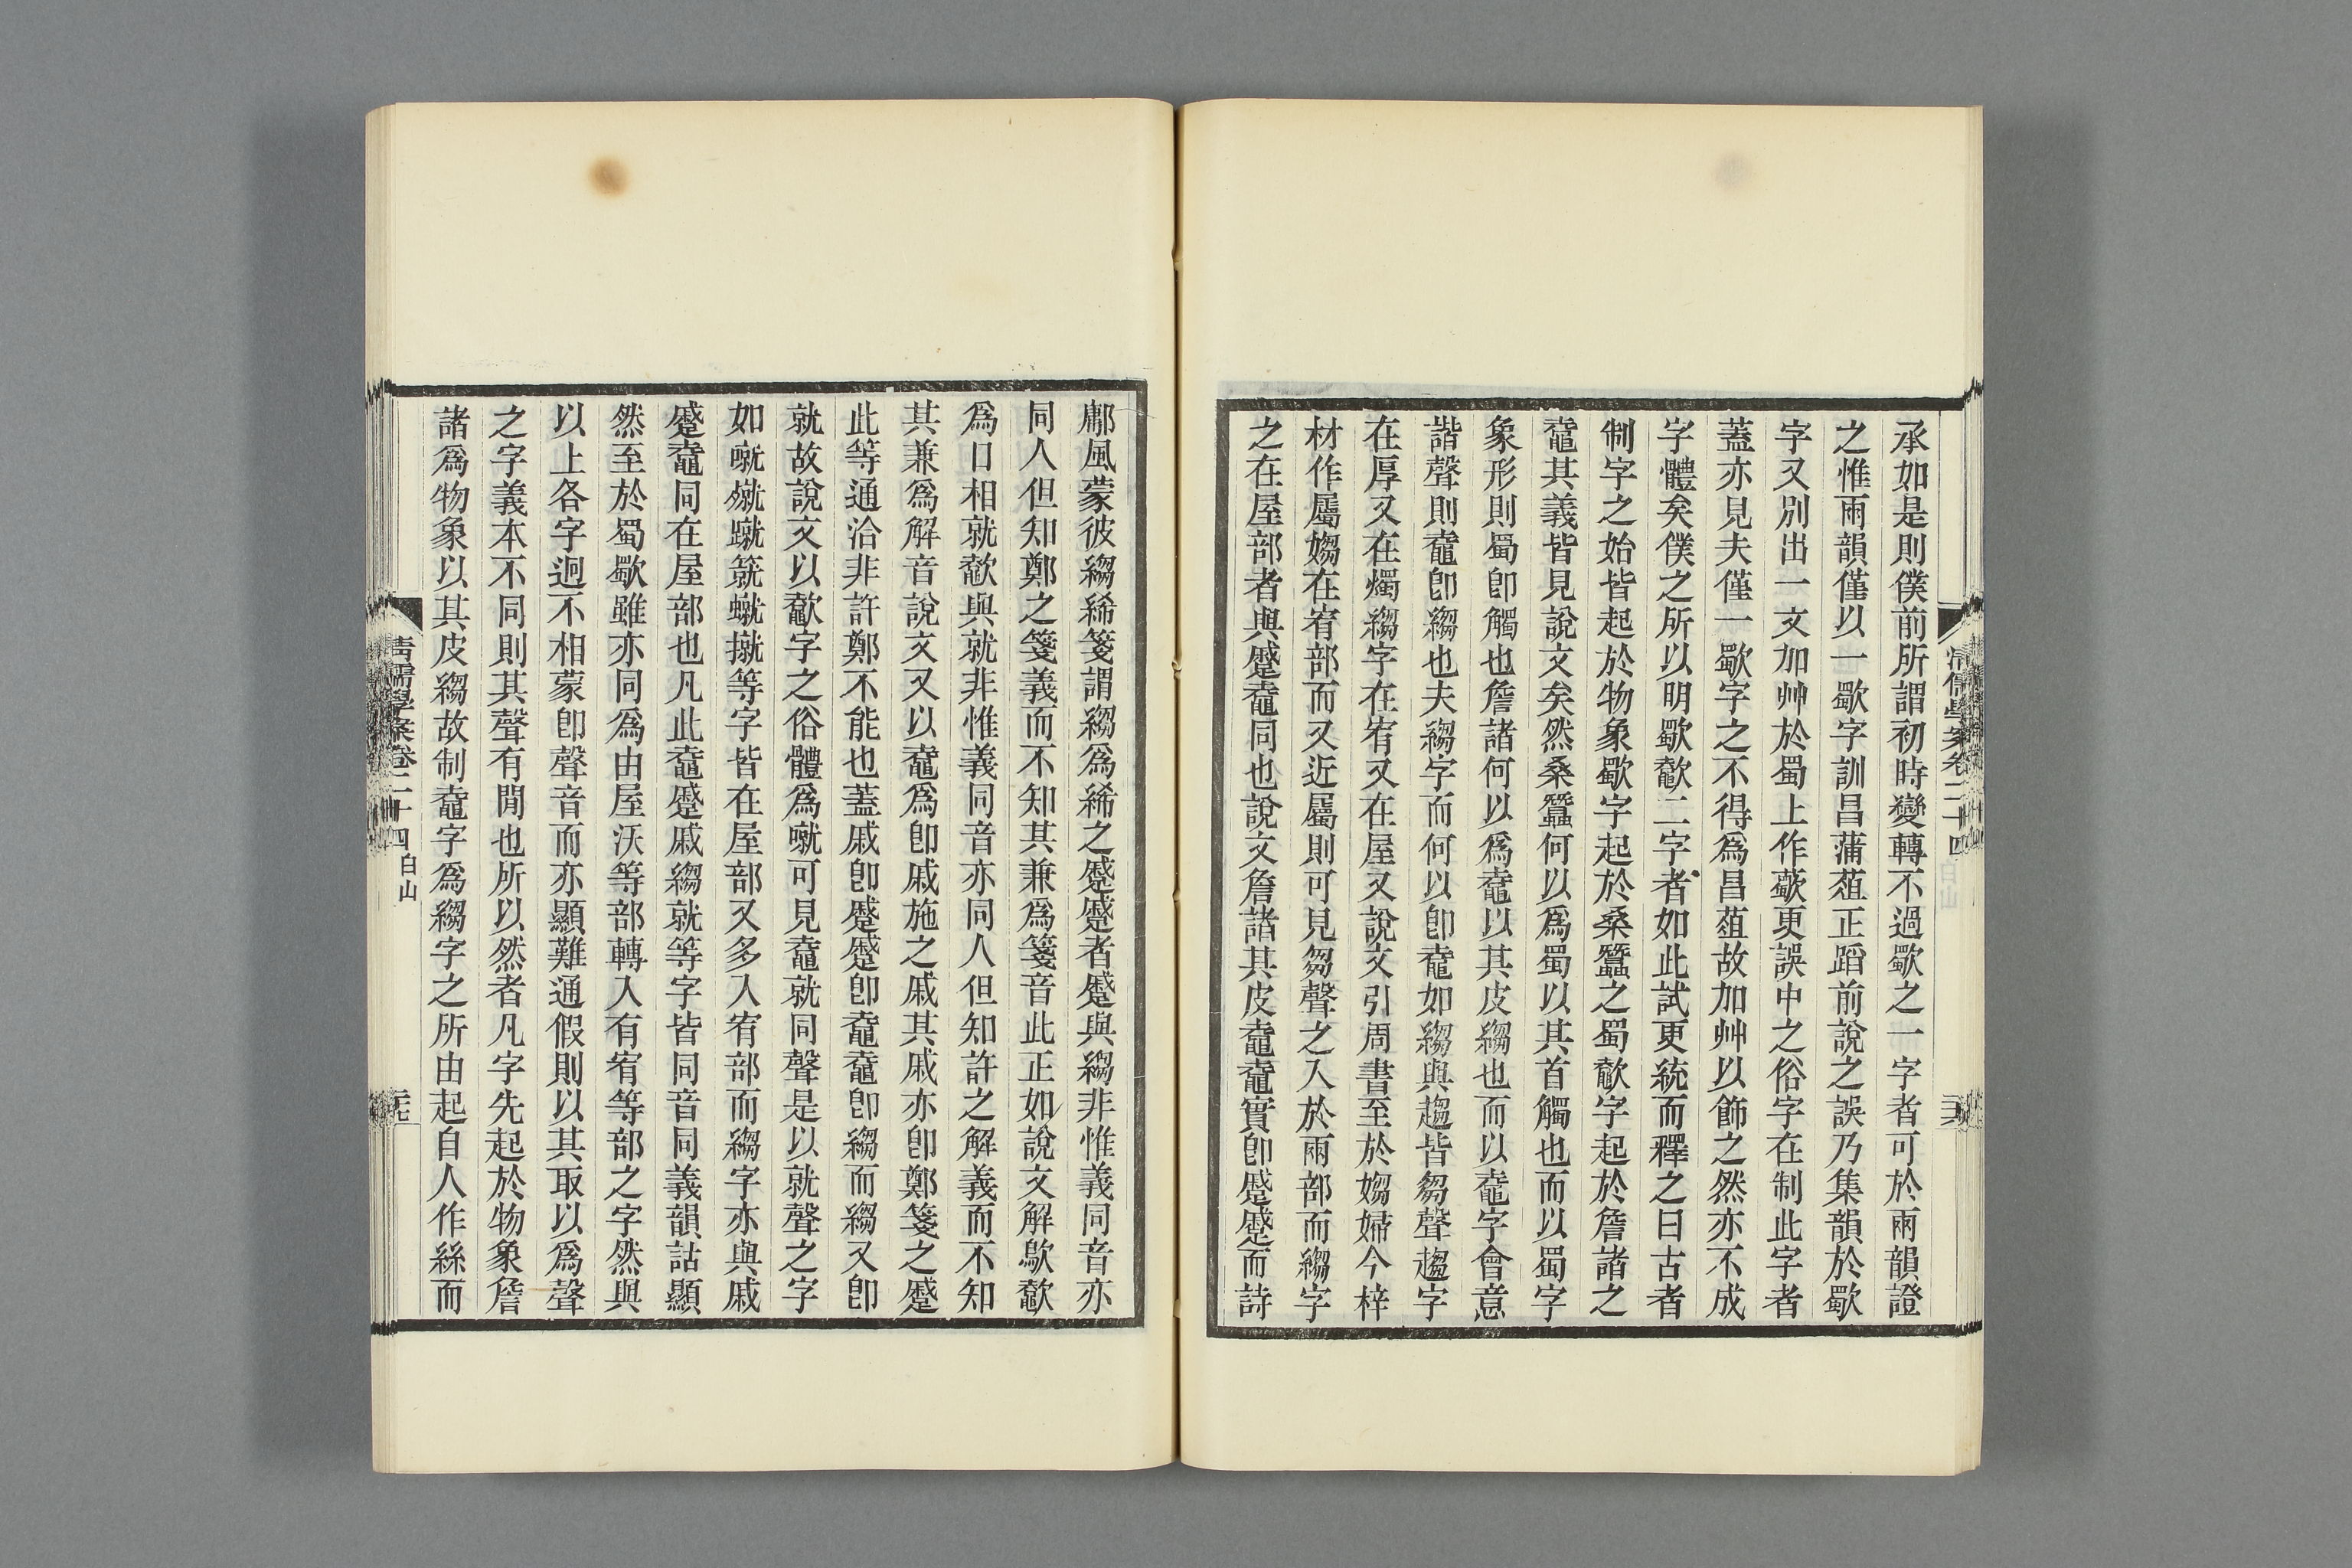 承如是則僕前所謂初時變轉不過歜之一字者可於雨韻證
之惟雨韻僅以一歜字訓昌蒲葅正蹈前說之誤乃集韻於歜
字又別出一文加艸於蜀上作蘜更誤中之俗字在制此字者
蓋亦見夫僅一歜字之不得爲昌葅故加艸以飾之然亦不成
字體矣僕之所以明歜歗二字者如此試更統而釋之曰古者
制字之始皆起於物象歜字起於桑蠶之蜀字起於詹諸之
鼀其義皆見說文矣然桑蠶何以爲蜀以其首觸也而以蜀字
象形則蜀卽觸也詹諸何以爲鼀以其皮縐也而以鼀字會意
諧聲則鼀卽縐也夫縐字而何以卽鼀如縐與趨皆芻聲趨字
在厚又在燭縐字在宥又在屋又說文引周書至於媰婦今梓
材作屬媰在宥部而又近屬則可見芻聲之入於雨部而縐字
之在屋部者與蹙鼀同也說文詹諸其皮鼀鼀實卽蹙蹙而詩
鄘風蒙彼縐絺箋謂縐爲絺之蹙蹙者蹙與縐非惟義同音亦
同人但知鄭之箋義而不知其兼爲箋音此正如說文解歍
爲口相就與就非惟義同音亦同人但知許之解義而不知
其兼爲解音說文又以鼀爲卽戚施之戚其戚亦卽鄭箋之蹙
此等通洽非許鄭不能也蓋戚卽蹙蹙卽鼀鼀卽縐而縐又卽
就故說文以字之俗體爲噈可見鼀就同聲是以就聲之字
如噈蹴等字皆在屋部又多入宥部而縐字亦與戚
蹙鼀同在屋部也凡此鼀蹙戚縐就等字皆同音同義韻詁顯
然至於蜀歜雖亦同爲由屋沃等部轉入有宥等部之字然與
以上各字迥不相蒙卽聲音而亦顯難通假則以其取以爲聲
之字義本不同則其聲有閒也所以然者凡字先起於物象詹
諸爲物象以其皮縐故制鼀字爲縐字之所由起自人作絲而
清儒學案卷二十四 白山